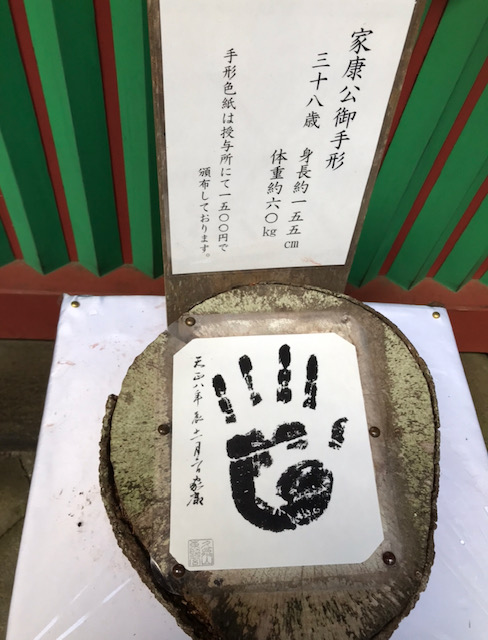 家康公御手形
三十八歳　身長約一五五cm
体重約六〇kg
手形色紙は授与所にて一五〇〇円で
頒布しております。
天正八年辰
家康